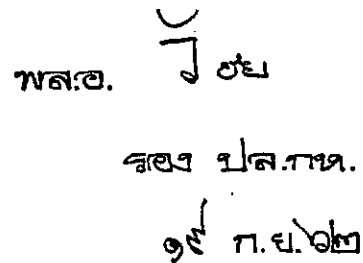 พล.อ.
รอง ปล.กห.
ก.ย. ๖๒